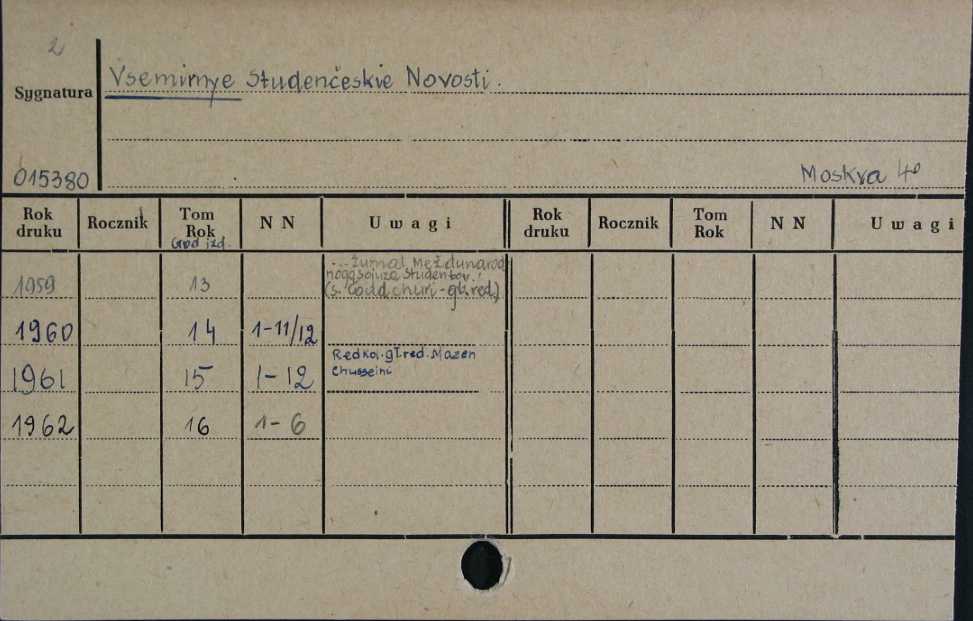 2
Vsemirnye Studenčeskie Novosti.
Sygnatura
015380
Moskva 4°
Rok druku Rocznik Tom Rok NN Uwagi Rok druku Rocznik Tom Rok NN Uwagi
God izd.
...žurnal Meždunarod
nogo sojuza studentov.
1959 13
(s. churi - gł. red.)
1960 14 1-11/12
Redkol. gł. red. Mazen
Chusseini
1961 15 1-12
1962 16 1-6